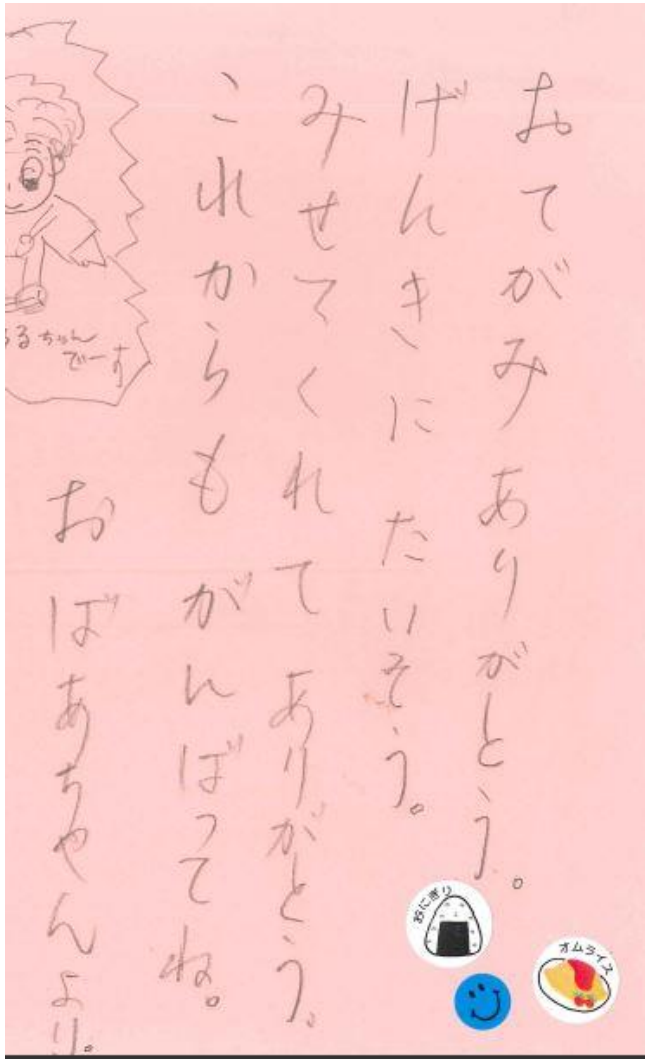 おてがみ ありがとう。
げんきに たいそう。
みせてくれて ありがとう。
これからも がんばってね。
おばあちゃんより。
るちゃん
でーす
おにぎり
オムライス